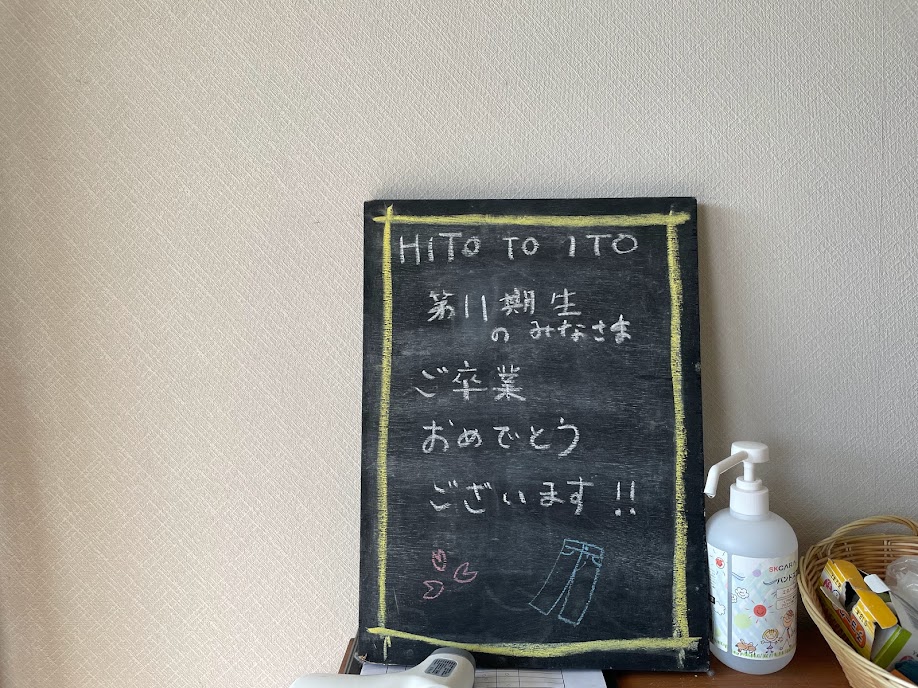 HiTO TO ITO
第11期生
のみなさま
ご卒業
おめでとう
ございます!!
SKCAR
ハンド